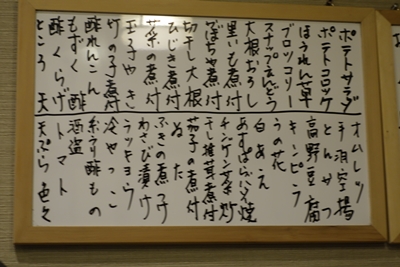 ポテトサラダ
ポテトコロッケ
ほうれん草
ブロッコリー
スナップえんどう
大根おろし
里いも煮付
かぼちゃ煮付
ひじき煮付
切干し大根
菜の煮付
玉子やき
竹の子煮付
酢れんこん
もずく酢
酢くらげ
ところ天
オムレツ
手羽空揚
とんかつ
高野豆腐
キンピラ
うの花
白あえ
アスパラハライ焼
チンゲン菜炒
干し椎茸煮付
茄子の煮付
ぬた
ふきの煮付
わさび漬け
ラッキョウ
冷やっこ
糸うり酢もの
酒盗
トマト
天ぷら色々